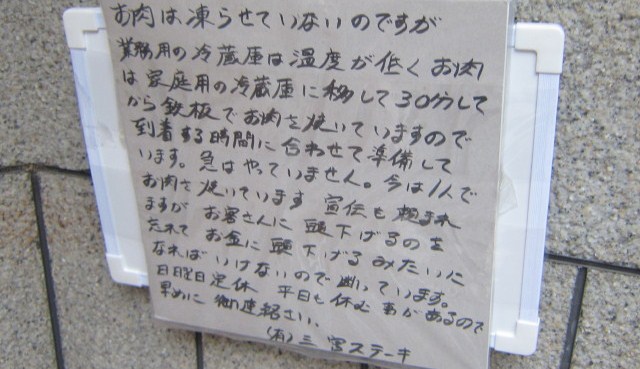 お肉は凍らせていないのですが
業務用の冷蔵庫は温度が低くお肉
は家庭用の冷蔵庫に移して30分して
から鉄板でお肉を焼いていますので
到着する時間に合わせて準備して
います。急はやっていません。今は1人で
お肉を焼いています 宣伝も頼まれ
ますが お客さんに 頭下げるのを
忘れて お金に 頭下げるみたいに
なればいけないので断っています。
日曜日定休 平日も休む事があるので
早めに御連絡さい。
(有)三宮ステーキ